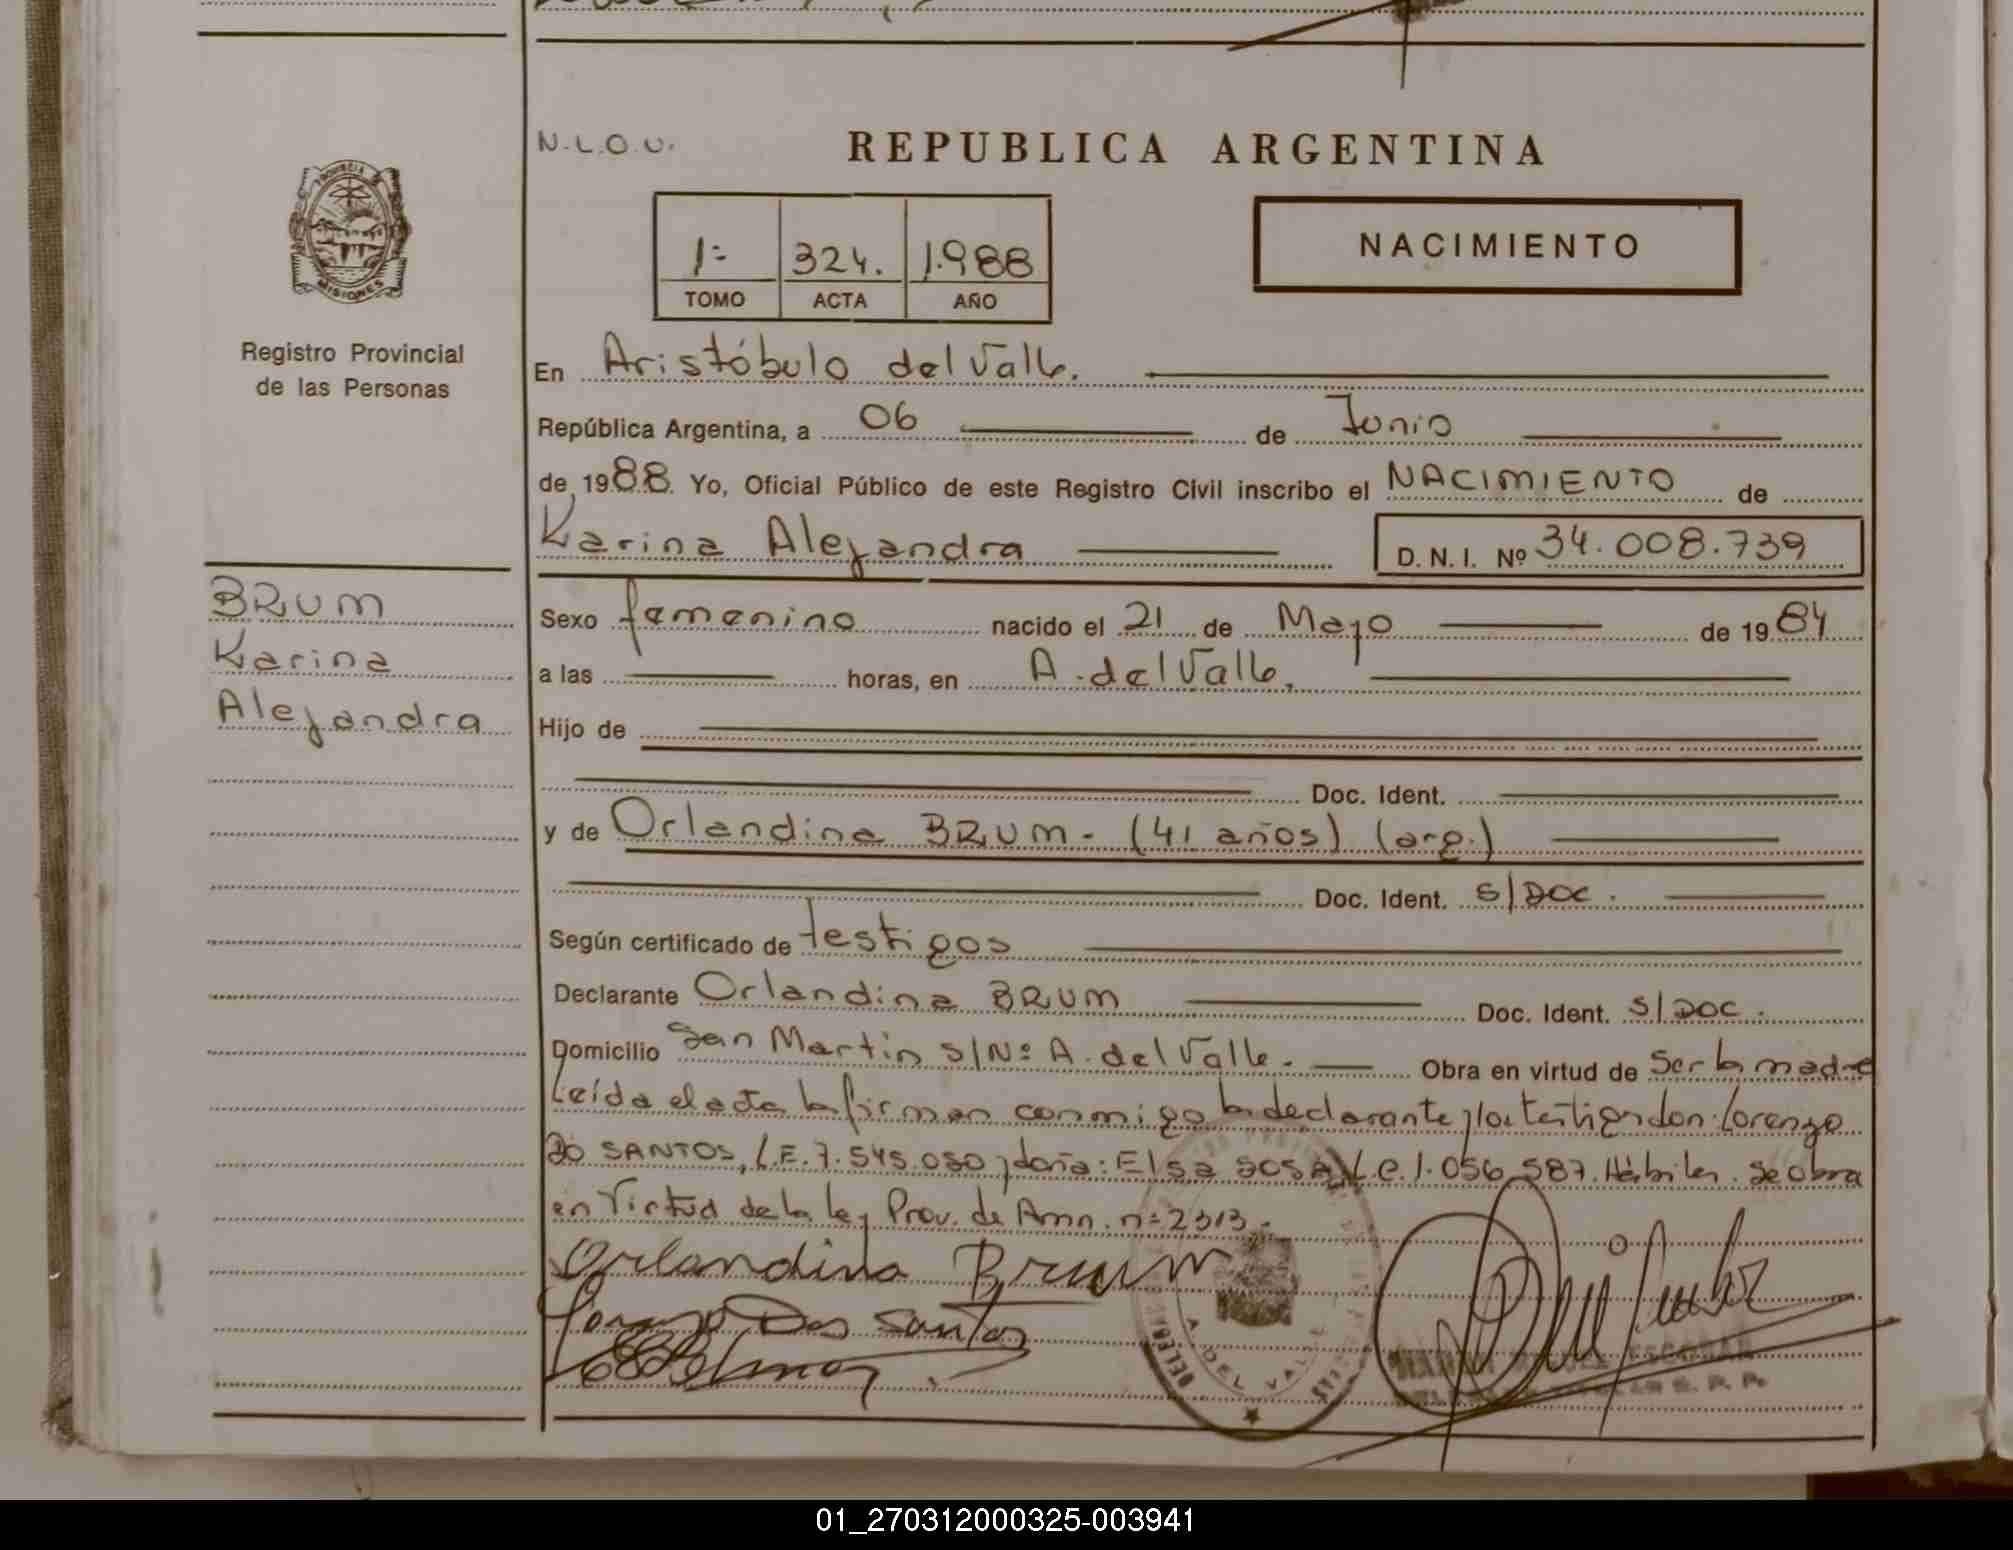 N.L.O.U.
REPUBLICA ARGENTINA
PROVINCIA DE
MISIONES
1= 324. 1.988
TOMO ACTA AÑO
NACIMIENTO
Registro Provincial
de las Personas
En Aristóbulo del Valle.
República Argentina, a 06 de Junio
de 1988. Yo, Oficial Público de este Registro Civil inscribo el NACIMIENTO de
Karina Alejandra D. N. I. Nº 34.008.739
BRUM
Karina
Alejandra
Sexo femenino nacido el 21 de Mayo de 1984
a las horas, en A. del Valle.
Hijo de
Doc. Ident.
y de Orlandina BRUM - (41 años) (arg.)
Doc. Ident. S/DOC.
Según certificado de testigos
Declarante Orlandina BRUM Doc. Ident. S/DOC.
Domicilio San Martin S/Nº A. del Valle. Obra en virtud de Ser la madre
Leída el acta la firman conmigo la declarante y los testigos don: Lorenzo
DO SANTOS, L.E. 7.545.050 y doña: Elsa SOSA, L.C. 1.056.587. Hábiles. Se obra
en Virtud de la ley Prov. de Amn. nº 2313.
Orlandina Brum
Lorenzo Dos Santos
A. DEL VALLE
ESCOBAR
01_270312000325-003941